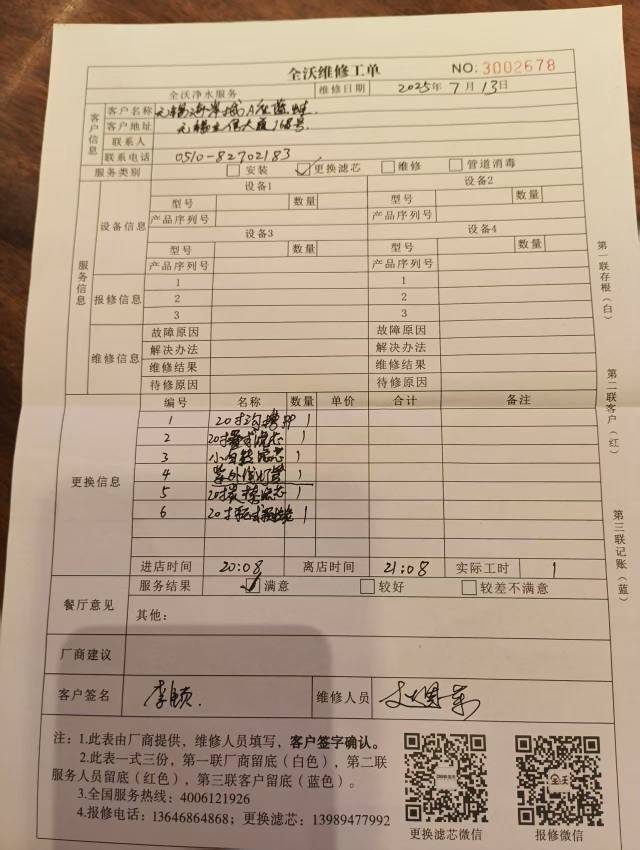 全沃维修工单 NO: 3002678
全沃净水服务 维修日期 2025年7月13日
客户信息
客户名称 无锡海岸城A座蓝蛙
客户地址 无锡 大厦168号
联系人
联系电话 0510-82702183
服务类别 安装 更换滤芯 维修 管道消毒
服务信息
设备信息
设备1 设备2
型号 数量 型号 数量
产品序列号 产品序列号
设备3 设备4
型号 数量 型号 数量
产品序列号 产品序列号
报修信息
1 1
2 2
3 3
维修信息
故障原因 故障原因
解决办法 解决办法
维修结果 维修结果
待修原因 待修原因
更换信息
编号 名称 数量 单价 合计 备注
1 20寸 1
2 20寸 滤芯 1
3 小 滤芯 1
4 紫外线灯管 1
5 20寸 滤芯 1
6 20寸 1
进店时间 20:08 离店时间 21:08 实际工时 1
餐厅意见
服务结果 满意 较好 较差不满意
其他:
厂商建议
客户签名 维修人员
注:1.此表由厂商提供,维修人员填写,客户签字确认。
2.此表一式三份,第一联厂商留底(白色),第二联
服务人员留底(红色),第三联客户留底(蓝色)。
3.全国服务热线:4006121926
4.报修电话:13646864868;更换滤芯:13989477992
更换滤芯微信 报修微信
第一联存根(白)
第二联客户(红)
第三联记账(蓝)